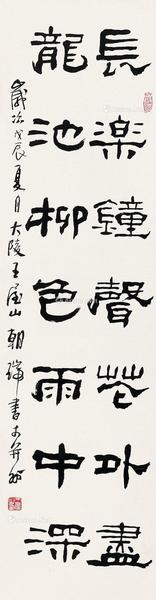 長楽鐘聲花外盡
龍池柳色雨中深
歲次戊辰夏月大陵王屋山朝瑞書於并州